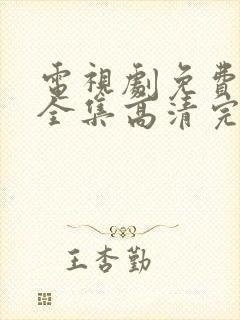 電視劇免費
全集高清完
王杏勤